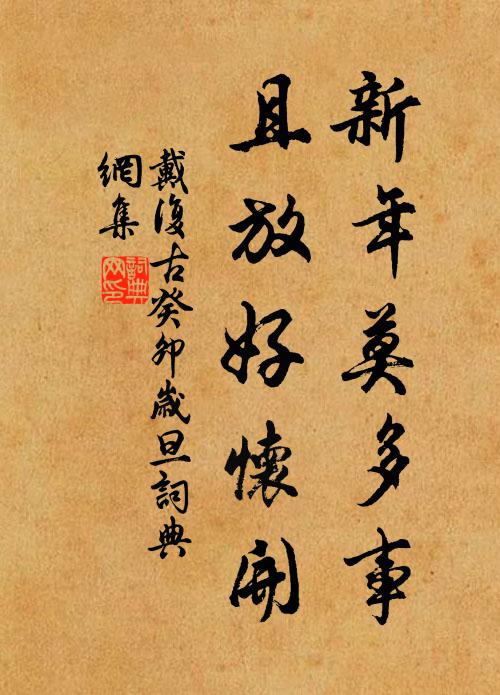 新年莫多事
且放好懷開
戴復古癸卯歲旦詞典
網集
詞典
网印